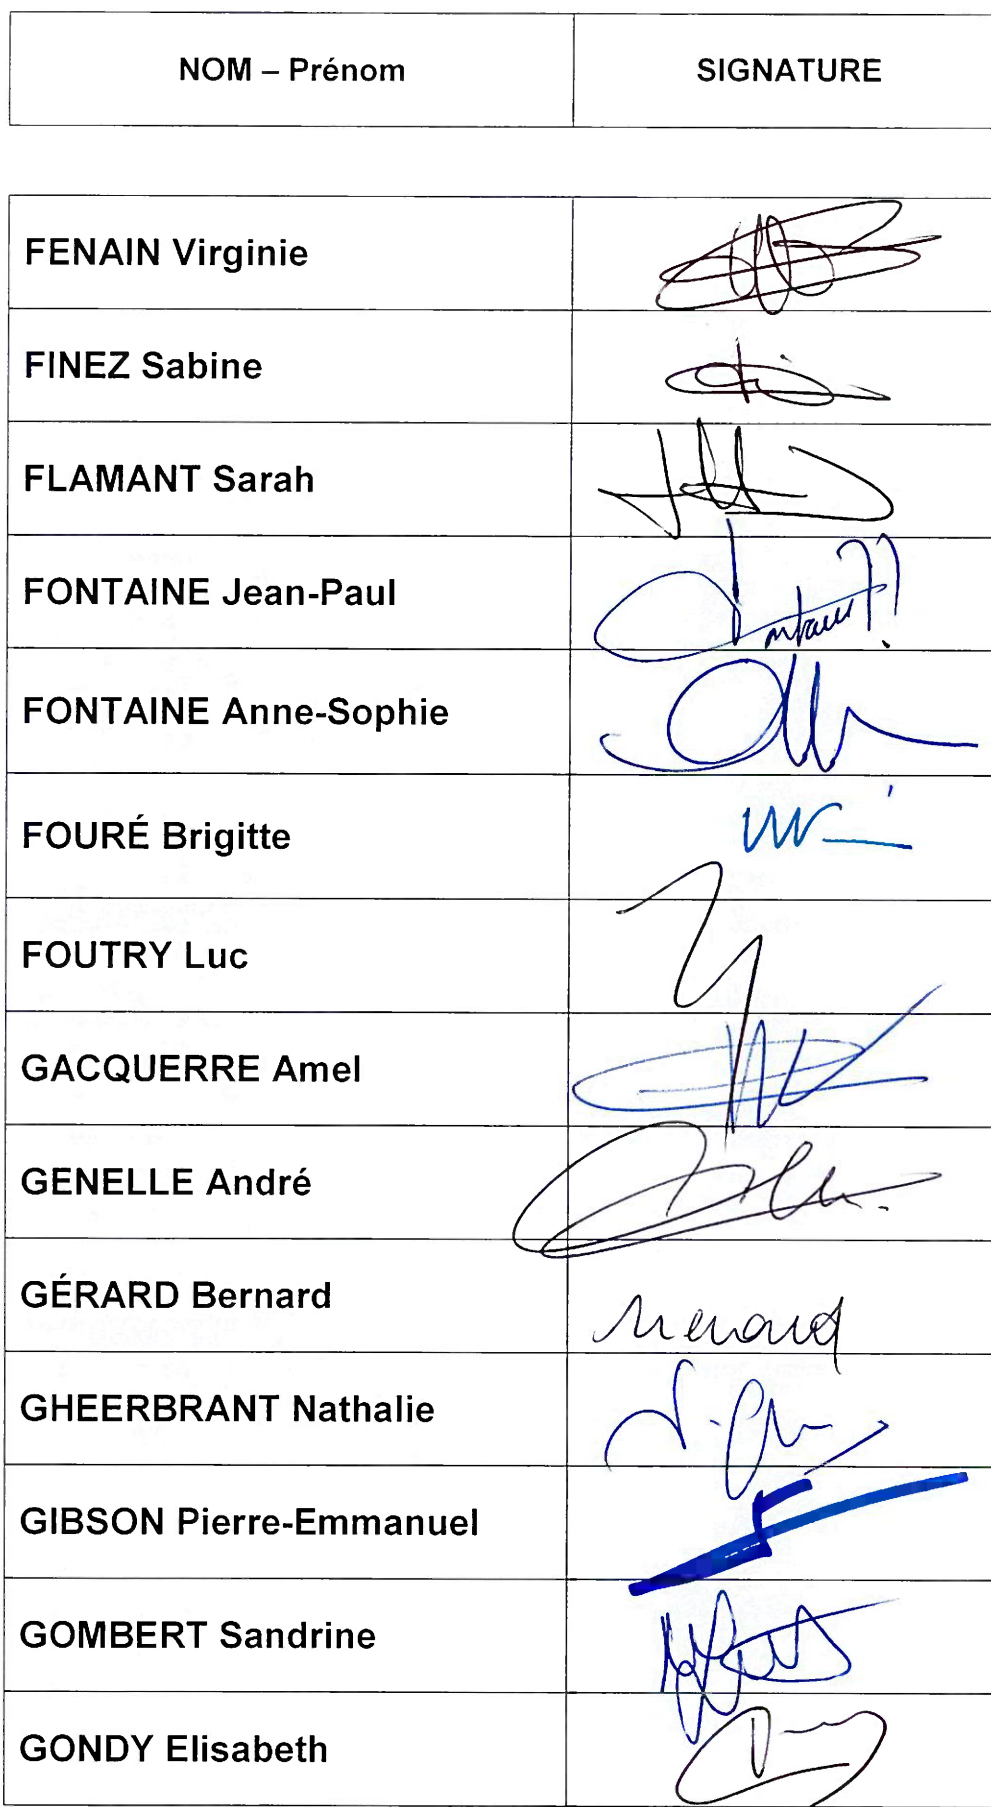 NOM – Prénom SIGNATURE
FENAIN Virginie
FINEZ Sabine
FLAMANT Sarah
FONTAINE Jean-Paul
FONTAINE Anne-Sophie
FOURÉ Brigitte
FOUTRY Luc
GACQUERRE Amel
GENELLE André
GÉRARD Bernard
GHEERBRANT Nathalie
GIBSON Pierre-Emmanuel
GOMBERT Sandrine
GONDY Elisabeth